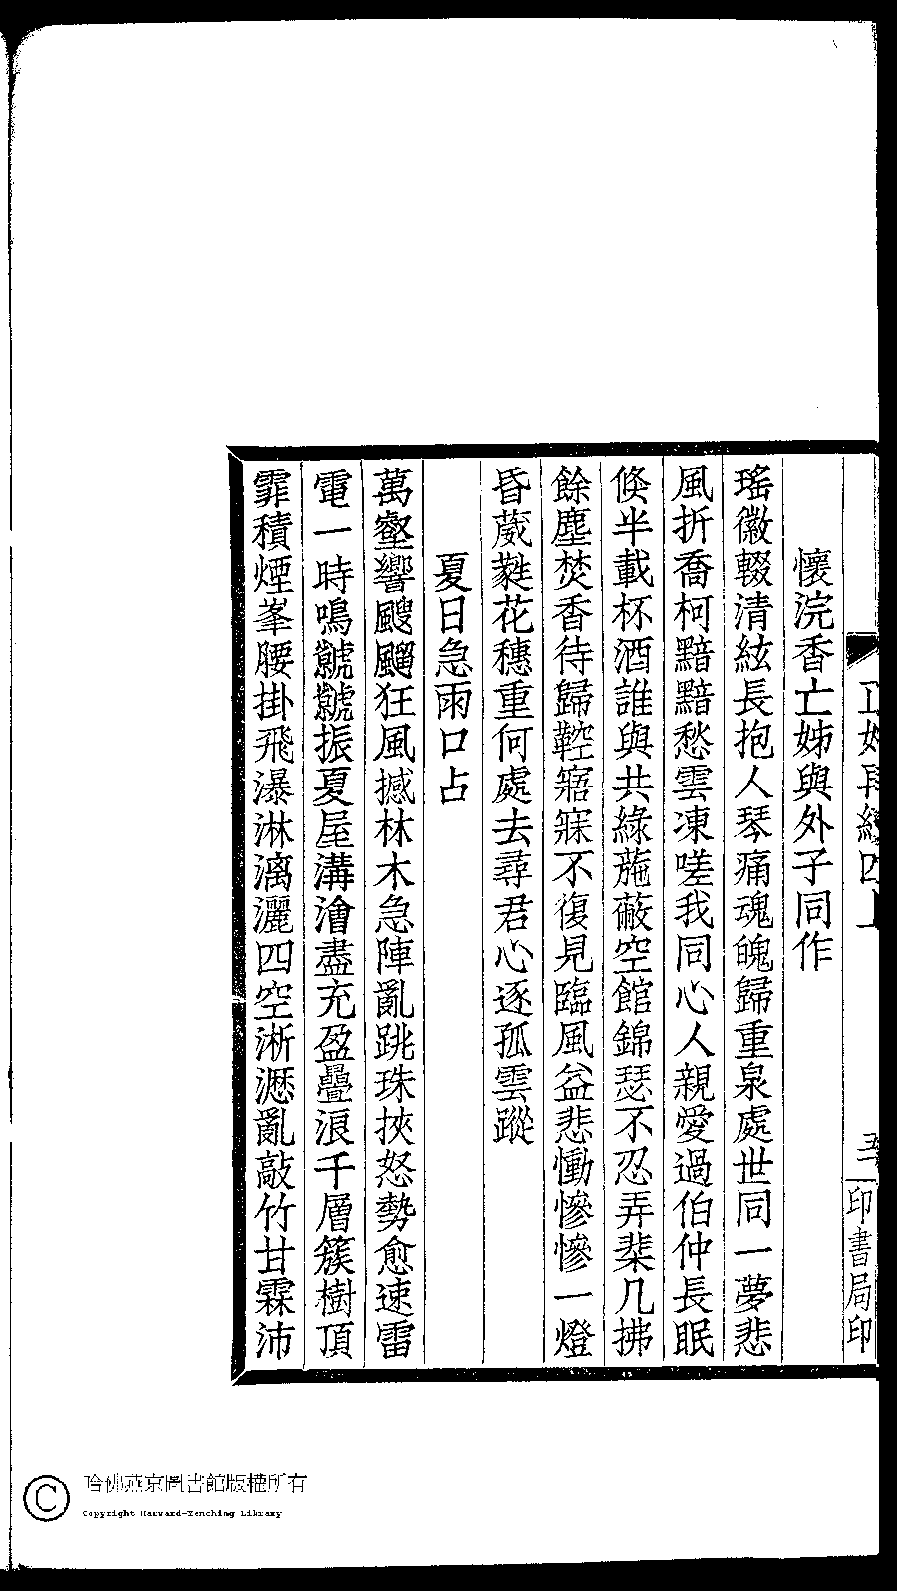 懷浣香亡姊與外子同作
瑤徽輟清絃長抱人琴痛魂魄歸重泉處世同一夢悲
風折喬柯黯黯愁雲凍嗟我同心人親愛過伯仲長眠
倐半載杯酒誰與共綠葹蔽空館錦瑟不忍弄棐几拂
餘塵焚香待歸鞚寤寐不復見臨風益悲慟慘慘一燈
昏葳蕤花穗重何處去尋君心逐孤雲蹤
夏日急雨口占
萬壑響颼飀狂風撼林木急陣亂跳珠挾怒勢愈速雷
電一時鳴虩虩振夏屋溝澮盡充盈疊浪千層簇樹頂
霏積煙峯腰掛飛瀑淋漓灑四空淅瀝亂敲竹甘霖沛
印書局印
哈佛燕京圖書館版權所有
Copyright Harvard-Yenching Library